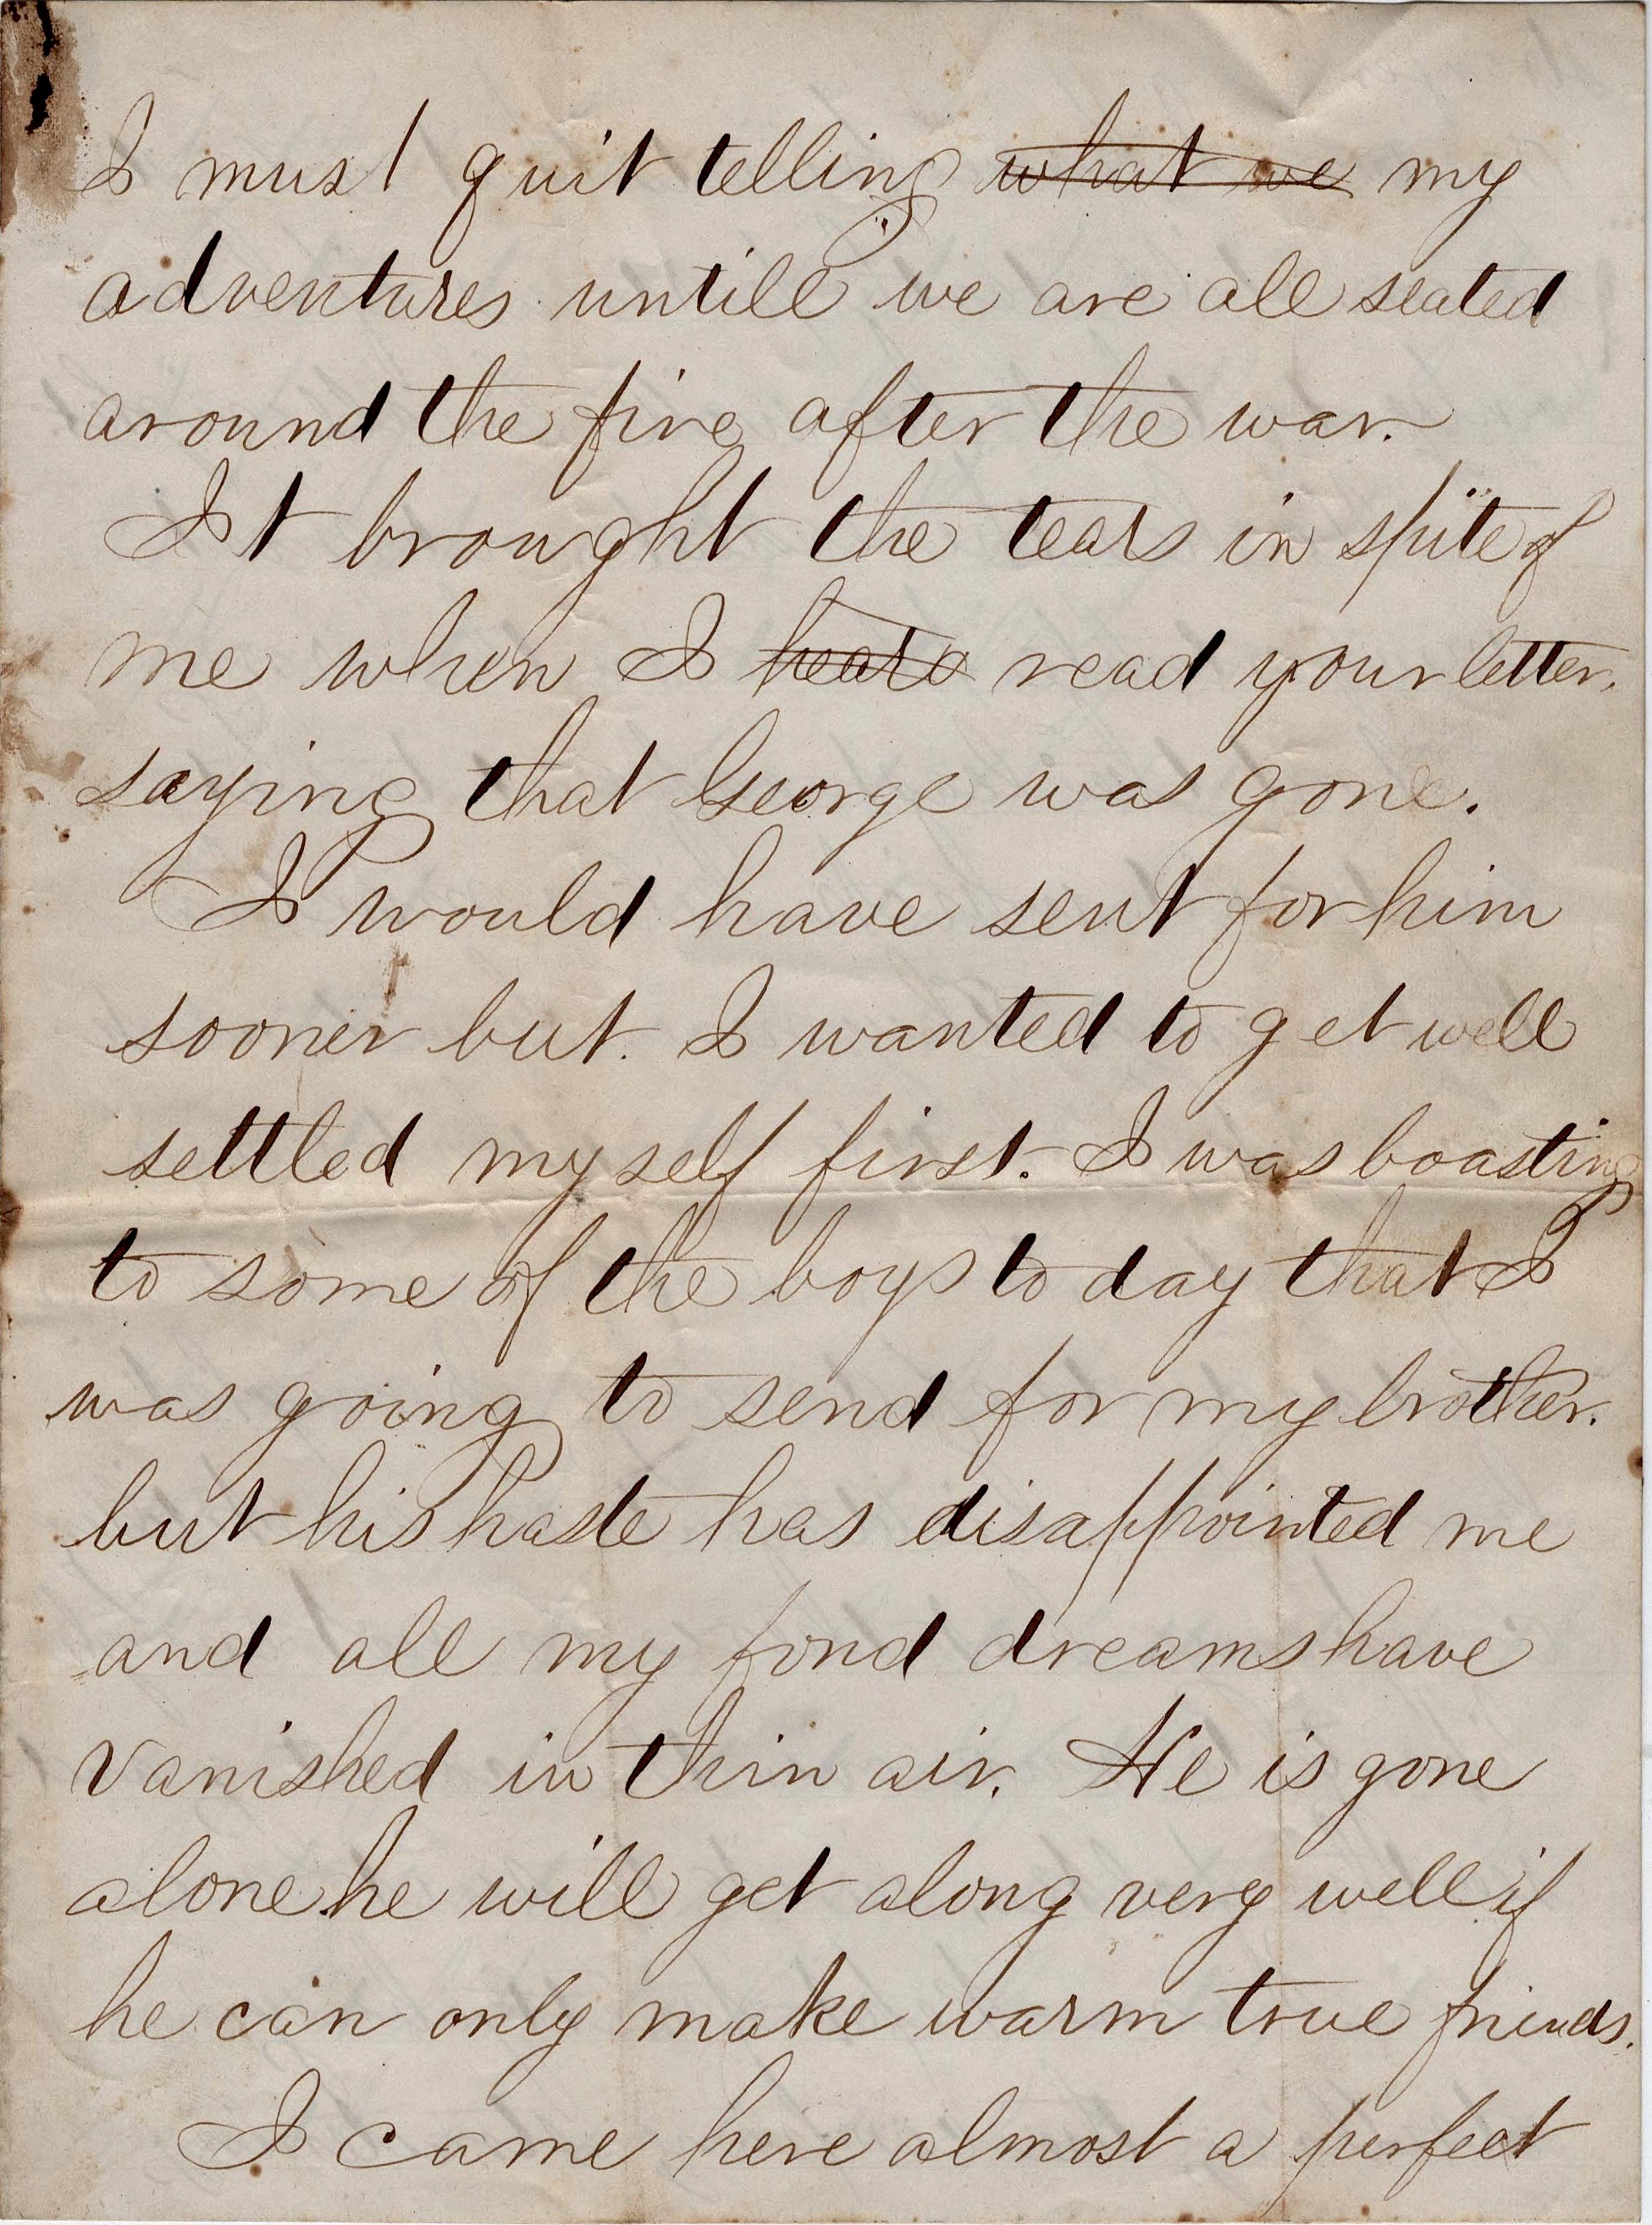 I must quit telling what we my
adventures untill we are all seated
around the fire after the war.
It brought the tears in spite of
me when I heard read your letter.
saying that George was gone.
I would have sent for him
sooner but. I wanted to get well
settled myself first. I was boasting
to some of the boys to day that I
was going to send for my brother.
but his haste has disappointed me
and all my fond dreams have
vanished in thin air. He is gone
alone he will get along very well if
he can only make warm true friends.
I came here almost a perfect